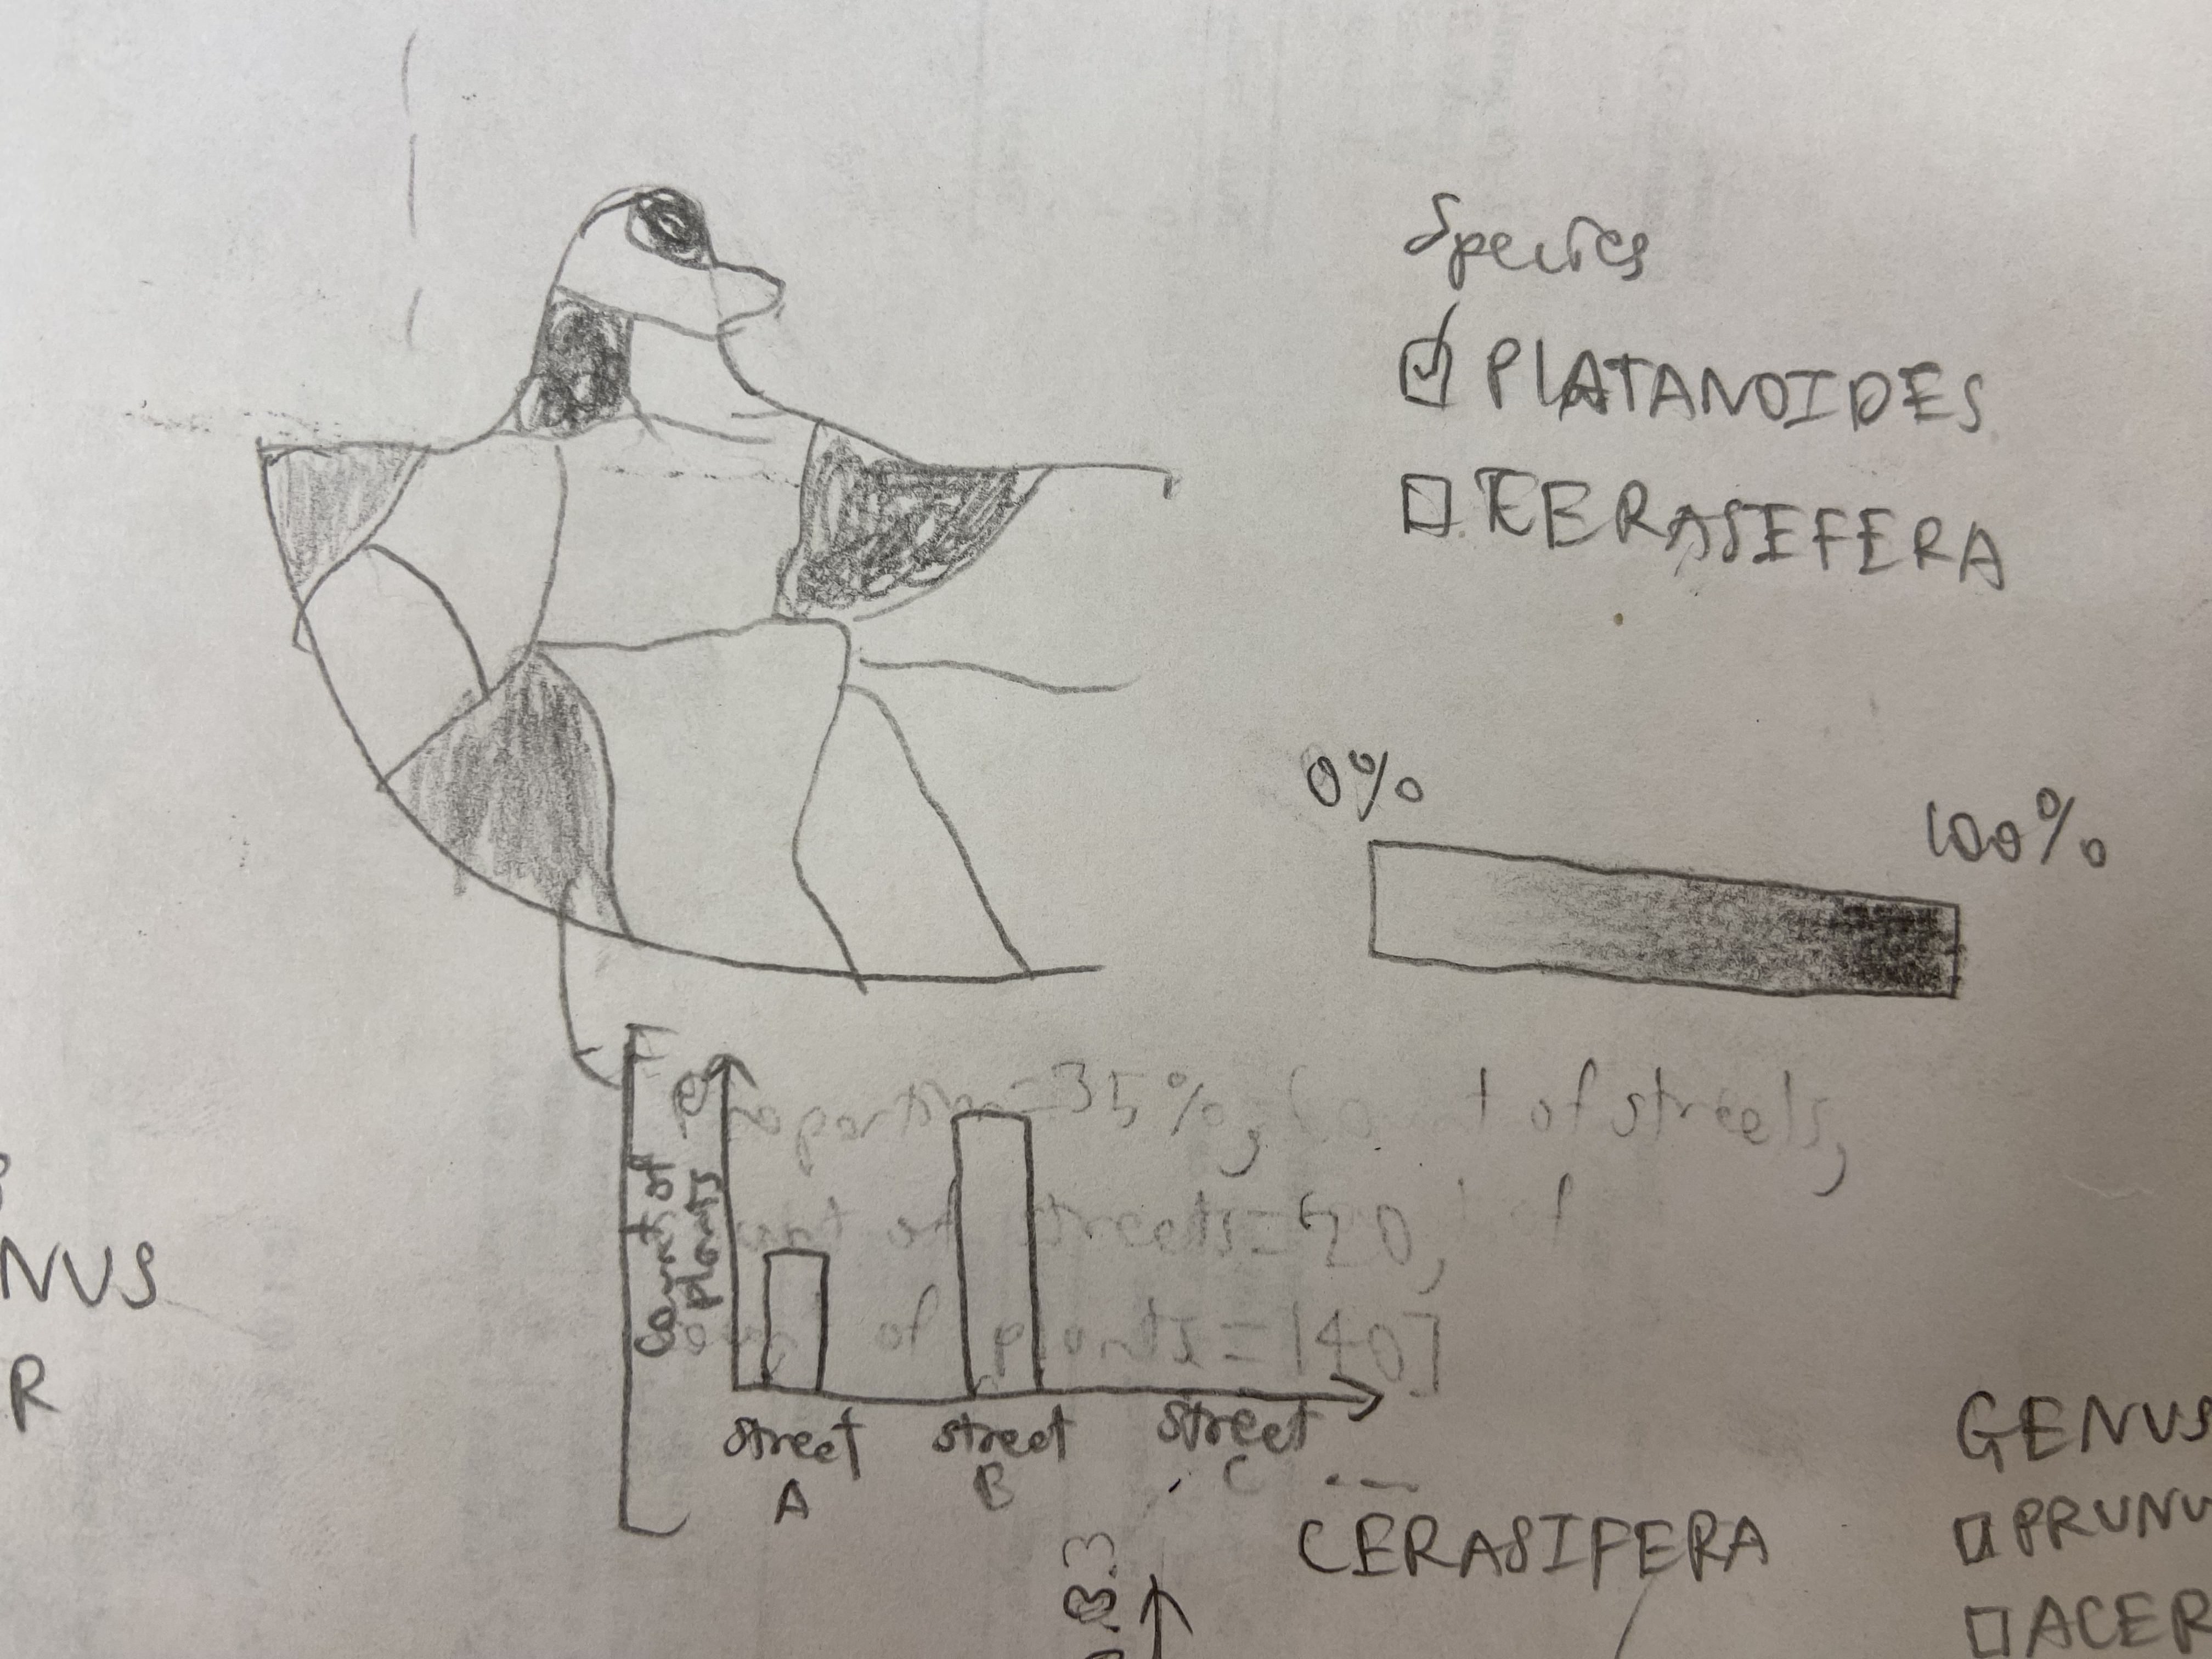 Species
PLATANOIDES
CERASEFERA
0%
100%
Proportion=35%, Count of streets,
of streets=20,
of plants=140]
Count of
plants
street
A
street
B
street
C
CERASIFERA
NUS
R
GENUS
PRUNU
ACER